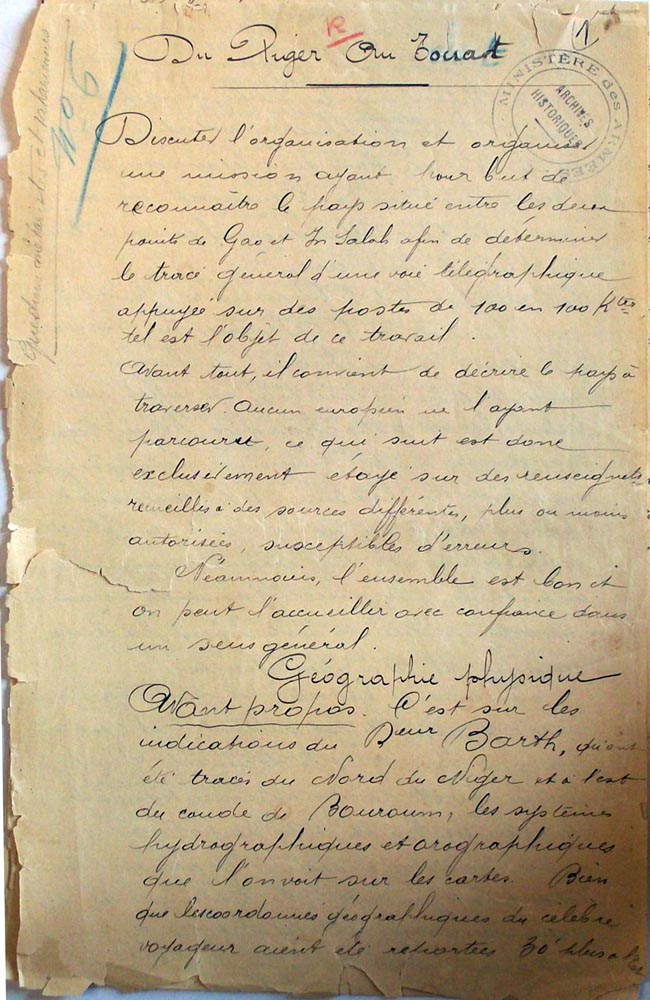 Du Niger Au Touat
R
1
No 6
MINISTÈRE des ARMÉES
ARCHIVES
HISTORIQUES
Discuter l'organisation et organiser
une mission ayant pour but de
reconnaître le pays situé entre les deux
points de Gao et In Salah afin de déterminer
le tracé général d'une voie télégraphique
appuyée sur des postes de 100 en 100 Ktres
tel est l'objet de ce travail.
Avant tout, il convient de décrire le pays à
traverser. Aucun européen ne l'ayant
parcouru, ce qui suit est donc
exclusivement étayé sur des renseignts
recueillis à des sources différentes, plus ou moins
autorisées, susceptibles d'erreurs.
Néammoins, l'ensemble est bon et
on peut l'accueillir avec confiance dans
un sens général.
Géographie physique
Avant propos. C'est sur les
indications du Deur Barth, qu'ont
été tracés du Nord du Niger et à l'est
du coude de Bouroum, les systèmes
hydrographiques et orographiques
que l'on voit sur les cartes. Bien
que les coordonnées géographiques du célèbre
voyageur aient été reportées 30' plus à